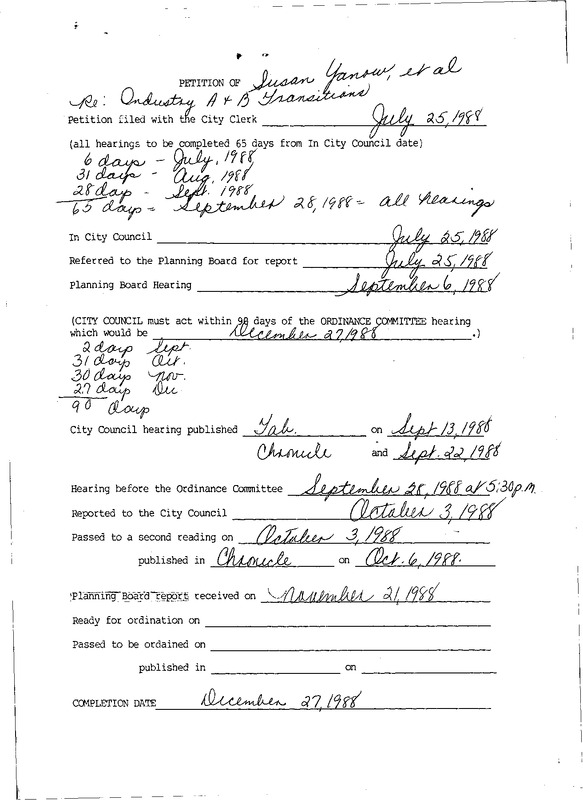 PETITION OF Susan Yanow, et al
Re: Industry A & B Transitions
Petition filed with the City Clerk July 25, 1988
(all hearings to be completed 65 days from In City Council date)
6 days - July, 1988
31 days - Aug, 1988
28 day - Sept. 1988
65 days = September 28, 1988 = all hearings
In City Council July 25, 1988
Referred to the Planning Board for report July 25, 1988
Planning Board Hearing September 6, 1988
(CITY COUNCIL must act within 90 days of the ORDINANCE COMMITTEE hearing
which would be December 27, 1988 .)
2 days Sept.
31 days Oct.
30 days Nov.
27 days Dec
90 days
City Council hearing published Tab. on Sept 13, 1988
Chronicle and Sept. 22, 1988
Hearing before the Ordinance Committee September 28, 1988 at 5:30 p.m.
Reported to the City Council October 3, 1988
Passed to a second reading on October 3, 1988
published in Chronicle on Oct. 6, 1988.
Planning Board report received on November 21, 1988
Ready for ordination on
Passed to be ordained on
published in on
COMPLETION DATE December 27, 1988